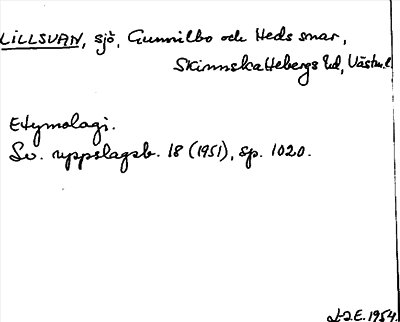 LILLSVAN, sjö, Gunnilbo och Heds snar,
Skinnskattebergs hd, Västm.l
Etymologi.
Sv. uppslagsb. 18 (1951), sp. 1020.
1954.